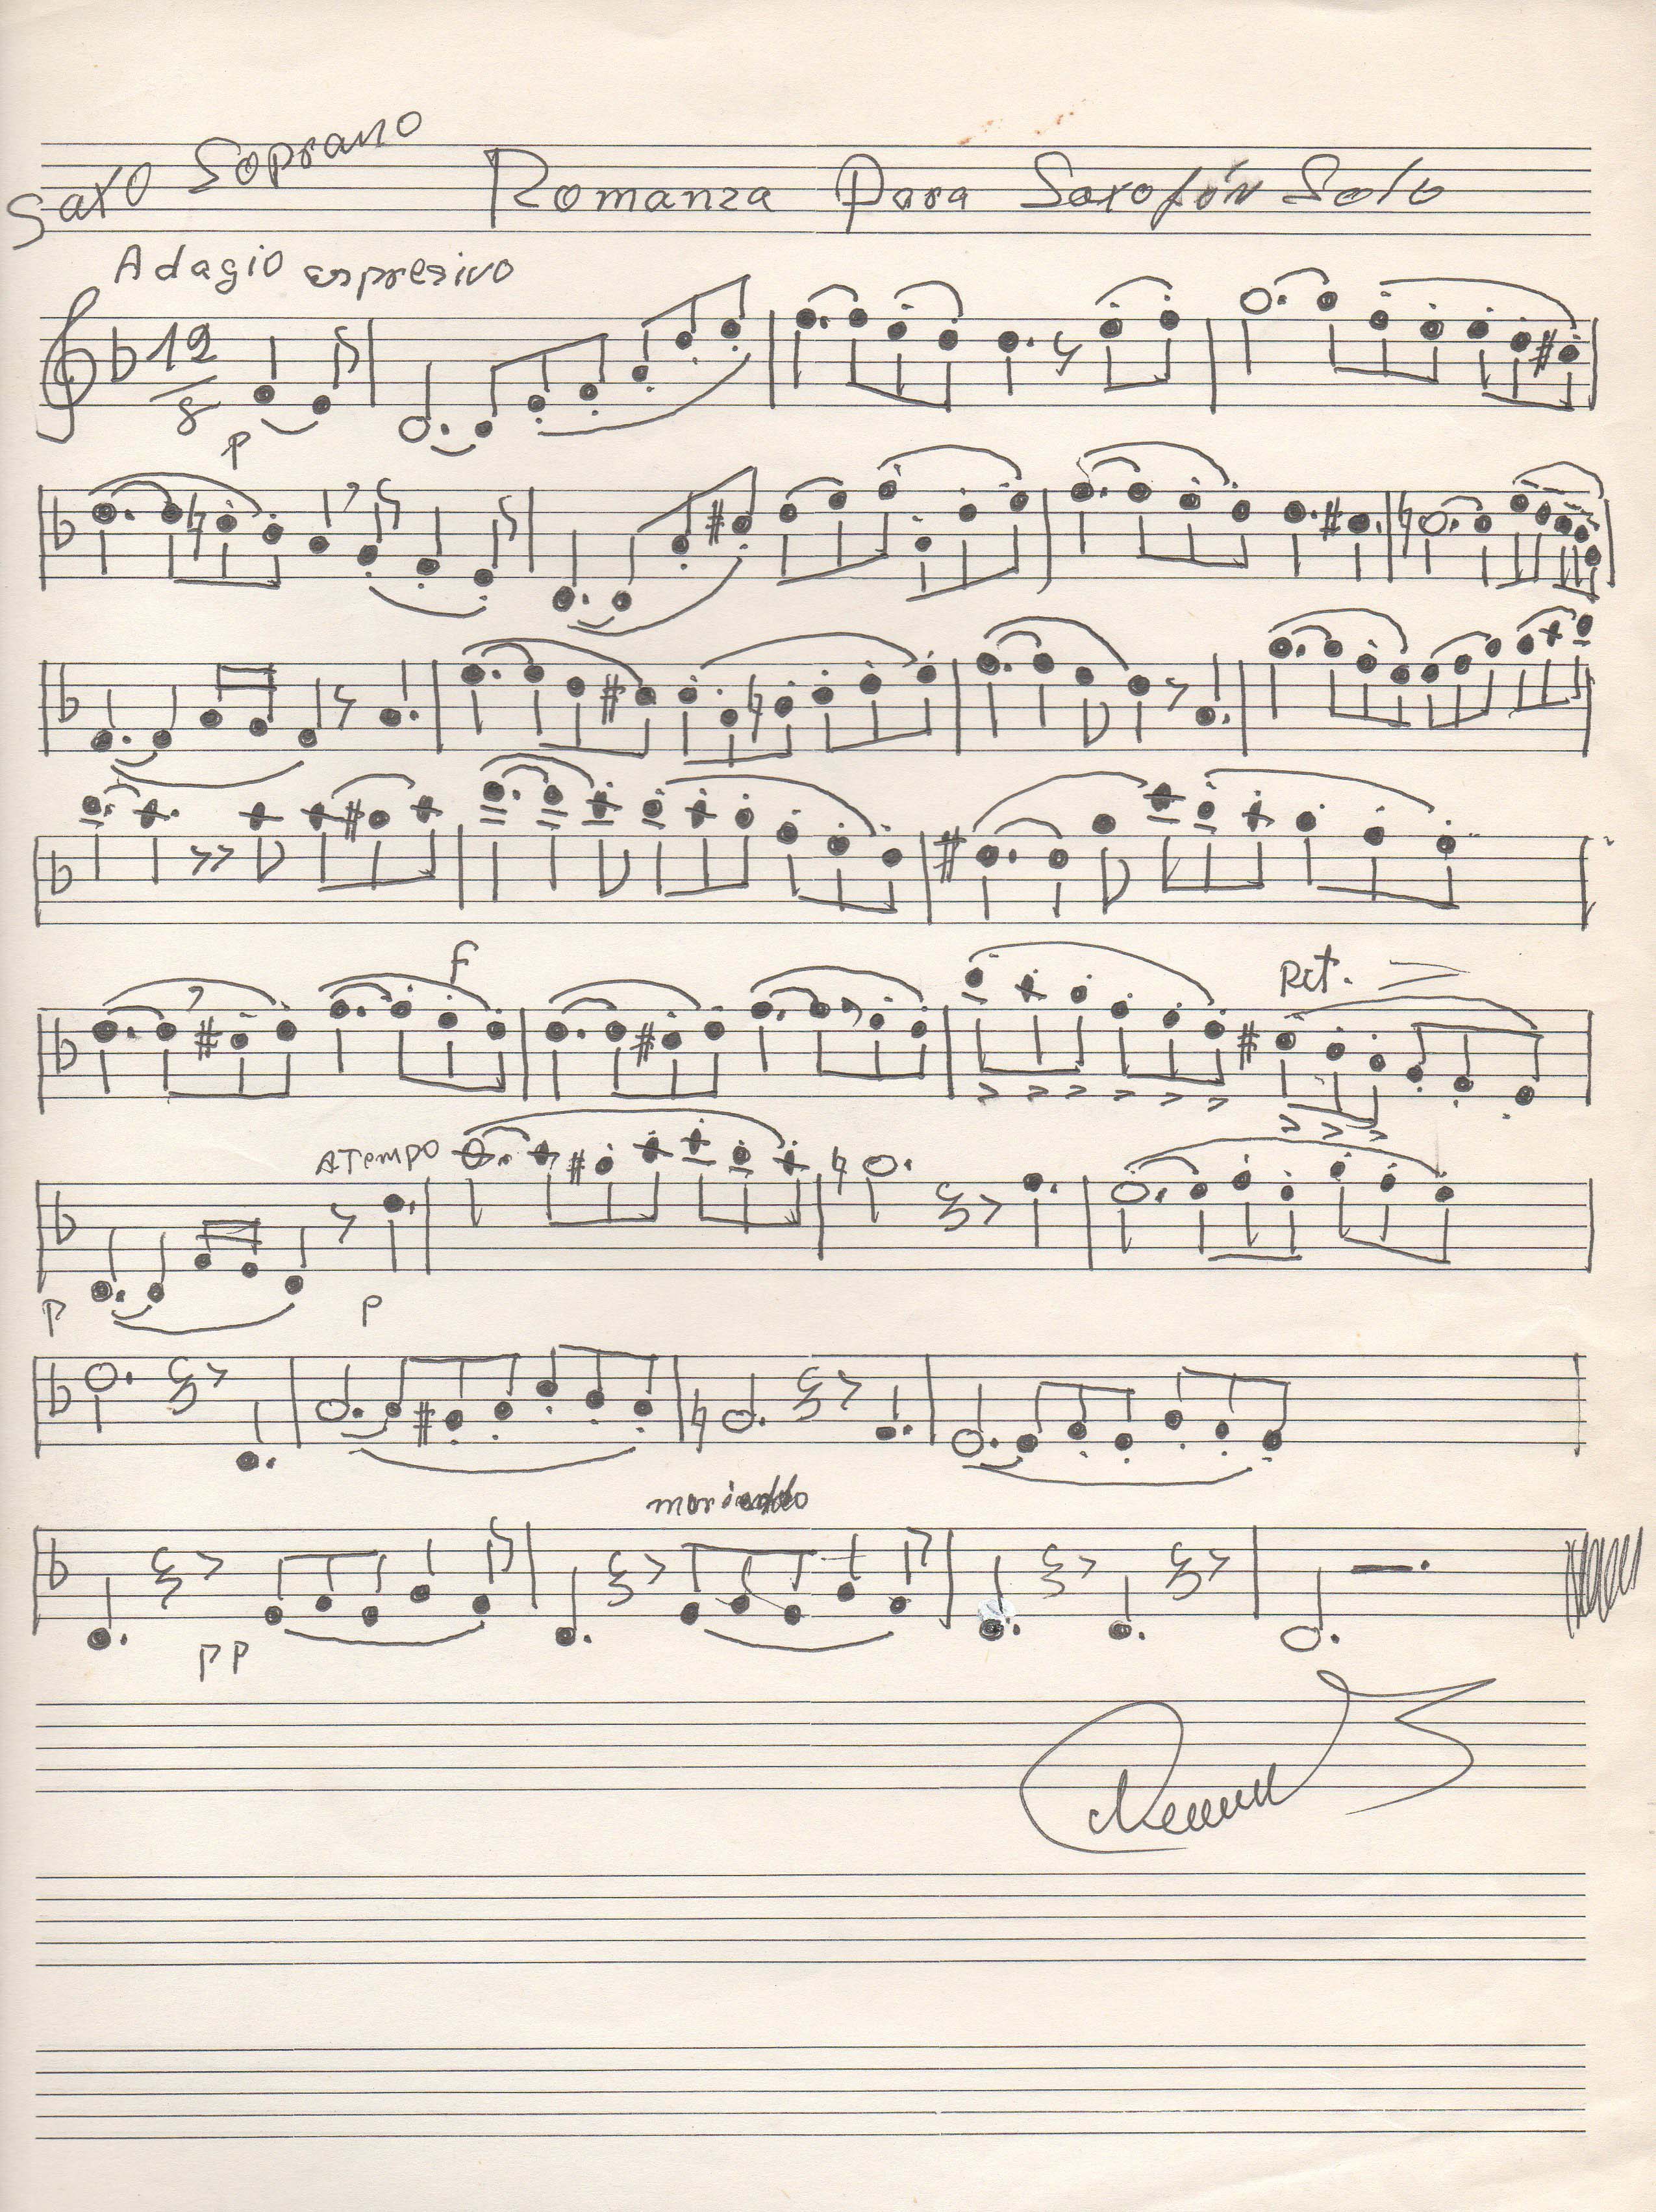 Saxo Soprano
Romanza Para Saxofón Solo
Adagio espresivo
12
8
p
F
Rit.
A Tempo
p
p
moriendo
pp